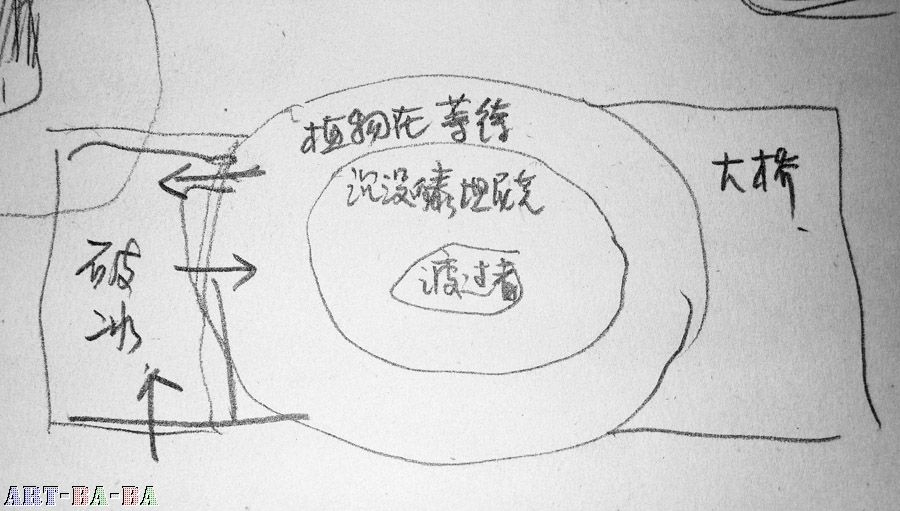 植物在等待
沉没泰坦尼克
大桥
破
冰
渡过者
ART-BA-BA